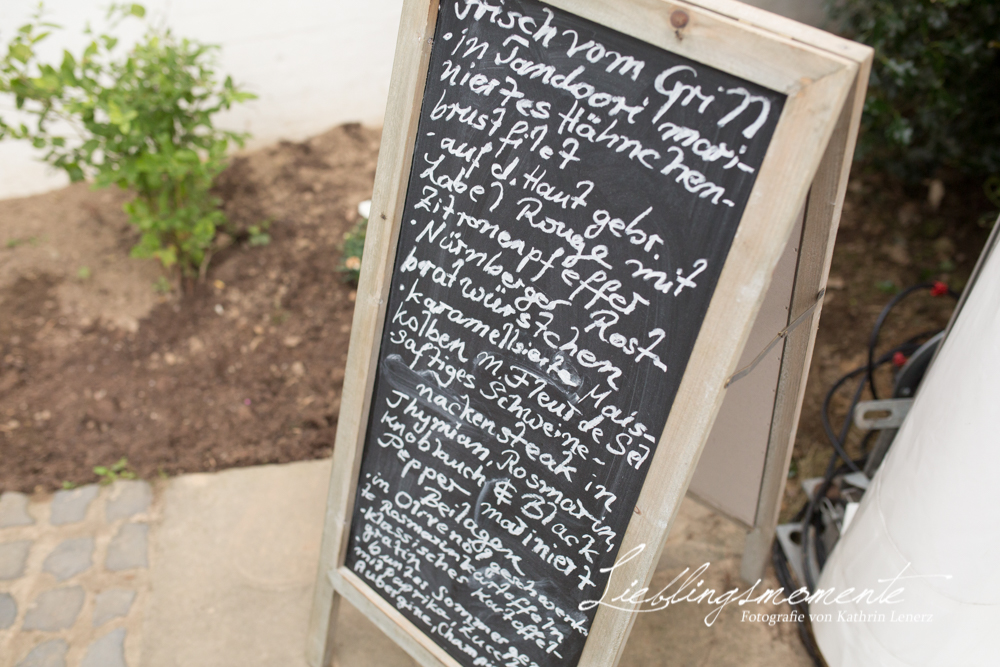 frisch vom Grill
· in Tandoori mari-
niertes Hähnchen-
brustfilet
· auf d. Haut gebr.
Label Rouge mit
Zitronenpfeffer
· Nürnberger Rost-
bratwürstchen
· karamellsierte Mais-
kolben m. Fleur de Sel
· saftiges Schweine-
nackensteak in
Thymian, Rosmarin,
Knoblauch & Black
Pepper mariniert
- Beilagen
· in Olivenöl geschwenk
te Rosmarinkartoffeln
· klassisches Kartoffel-
gratin
· buntes Sommerge
mit Paprika, Zucc
Aubergine, Champi
Lieblingsmomente
Fotografie von Kathrin Lenerz